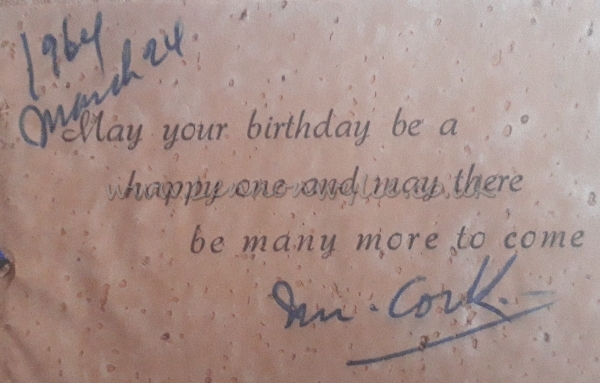 1964
March 24
May your birthday be a
happy one and may there
be many more to come
Cork.